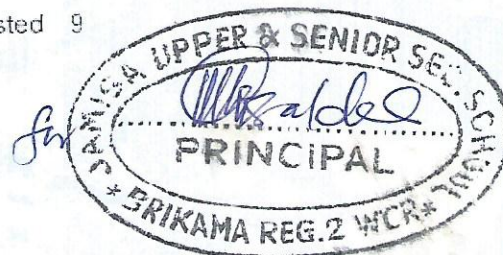 sted 9
JAMISA UPPER & SENIOR SEC. SCHOOL
for
PRINCIPAL
* BRIKAMA REG.2 WCR *